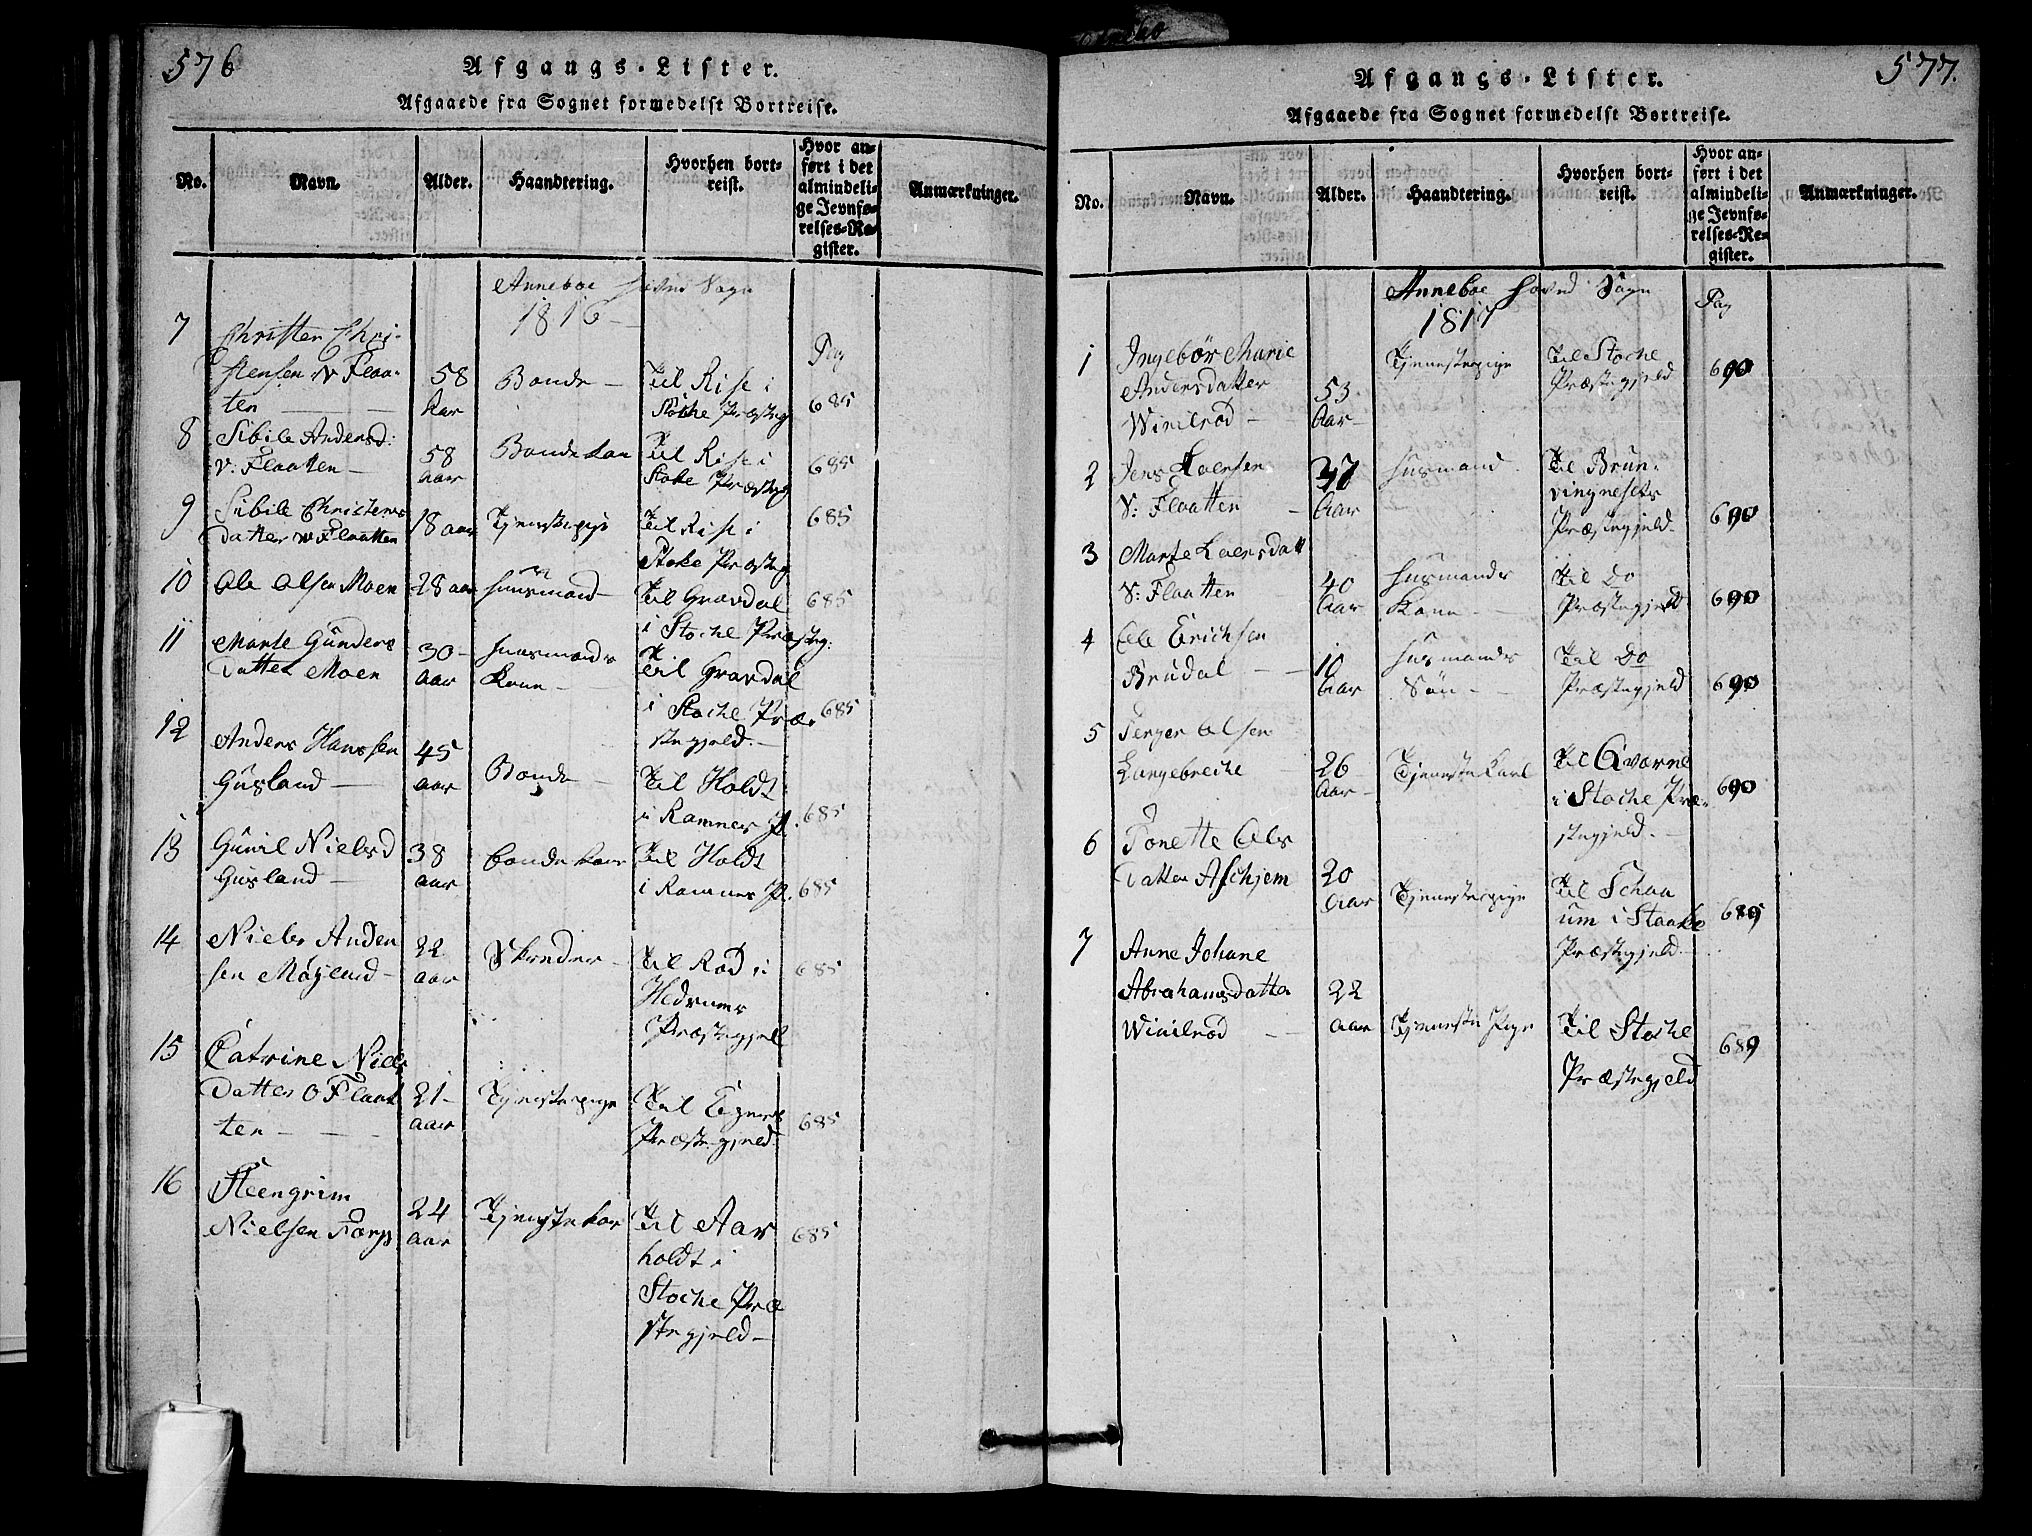 576
Afgangs-Lister.
Afgaaede fra Sognet formedelst Bortreise.
No. Navn. Alder. Haandtering. Hvorhen bortreist. Hvor anført i det almindelige Jevnførelses-Register. Anmærkninger.
Anneboe Hoved Sogn
1816 Pag
7 Christen Chri-
stensen N Flaa-
ten 58 Aar Bonde Til Rise i Stoche Præsteg 685
8 Sibile Andersd:
N: Flaatten 58 aar Bondekone Til Rise i Stoke Præsteg 685
9 Sibile Christens
Datter N Flaatten 18 aar Tjenestepige Til Rise i Stoke Præsteg 685
10 Ole Olsen Moen 28 aar Huusmand Til Gravdal i Stoche Præsteg: 685
11 Marte Gunders
Datter Moen 30 aar Huusmands Kone Til Gravdal i Stoche Præ-
stegjeld 685
12 Anders Hanssen
Gusland 45 aar Bonde Til Holdt i Ramnes P. 685
13 Gunil Nielsd
Gusland 38 aar Bondekone Til Holdt i Ramnes P. 685
14 Niels Anden
sen Møyland 22 aar Skreder Til Rød i Hedrums Præstegjel 685
15 Catrine Niels
Datter O Flaat
ten 21 aar Tjenestepige Til Egners Præstegjeld 685
16 Steengrim
Nielsen Forgs 24 aar Tjenestekar Til Aar
holdt i
Stoche Præ
stegjeld 685
577.
Afgangs-Lister.
Afgaaede fra Sognet formedelst Bortreise.
No. Navn. Alder. Haandtering. Hvorhen bortreist. Hvor anført i det almindelige Jevnførelses-Register. Anmærkninger.
Anneboe Hoved Sogn
1817 Pag
1 Ingebör Marie
Andersdatter
Winilrød 53 Aar Tjenestepige Til Stoche Præstegjeld 690
2 Jens Laersen
N: Flaatten 37 Aar Husmand Til Brun-
vingnesets
Præstegjeld 690
3 Marte Laersdatt
N: Flaatten 40 Aar Husmands Kone Til Do Præstegjeld 690
4 Ole Erichsen
Brudal 10 Aar Husmands Søn Til Do Præstegjeld 690
5 Terger Olsen
Langebreche 26 Aar Tjeneste Karl Til Qværne
i Stoche Præ-
stegjeld 690
6 Tonette Ols
Datter Aschjem 20 Aar Tjenestepige Til Schau
um i Staake
Præstegjeld 689
7 Anne Johane
Abrahamsdatter
Winilrød 22 aar Tjeneste Pige Til Stoche
Præstegjeld 689